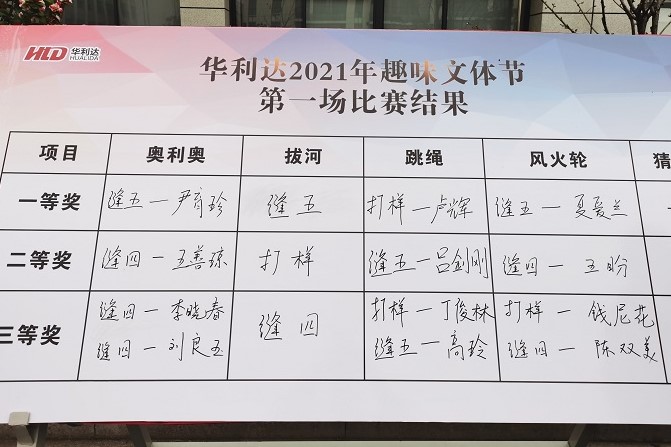 HLD 华利达
HUALIDA
华利达2021年趣味文体节
第一场比赛结果
项目 奥利奥 拔河 跳绳 风火轮 猜
一等奖 缝五一尹育玲 缝五 打样一卢辉 缝五一夏爱兰
二等奖 缝四一王善琼 打样 缝五一吕剑刚 缝四一王盼
三等奖 缝四一李晓春 缝四 打样一丁俊林 打样一钱尼花
缝四一刘良玉 缝五一高玲 缝四一陈双美